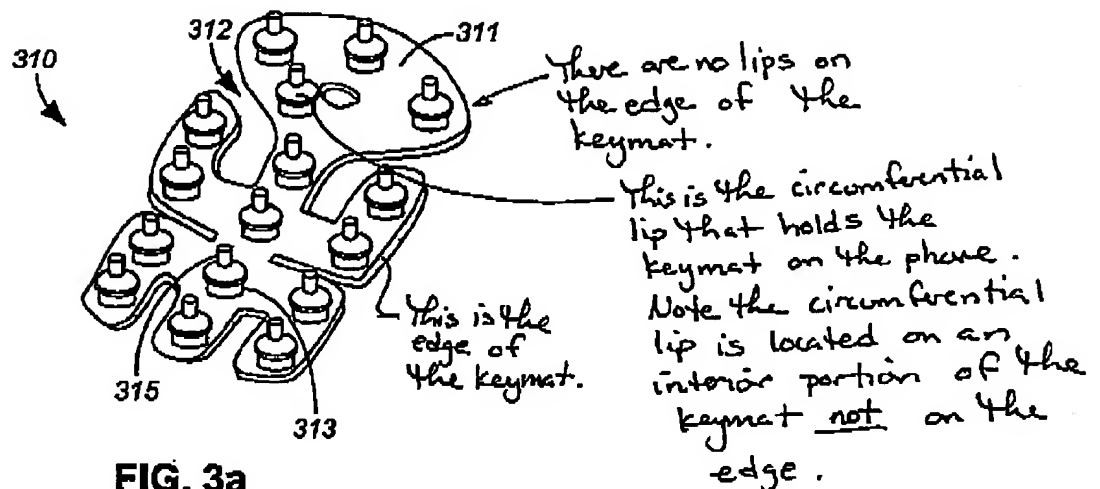 310
312
311
There are no lips on
the edge of the
keymat.
This is the circumferential
lip that holds the
keymat on the phone.
Note the circumferential
lip is located on an
interior portion of the
keymat not on the
edge.
This is the
edge of
the keymat.
315
313
FIG. 3a